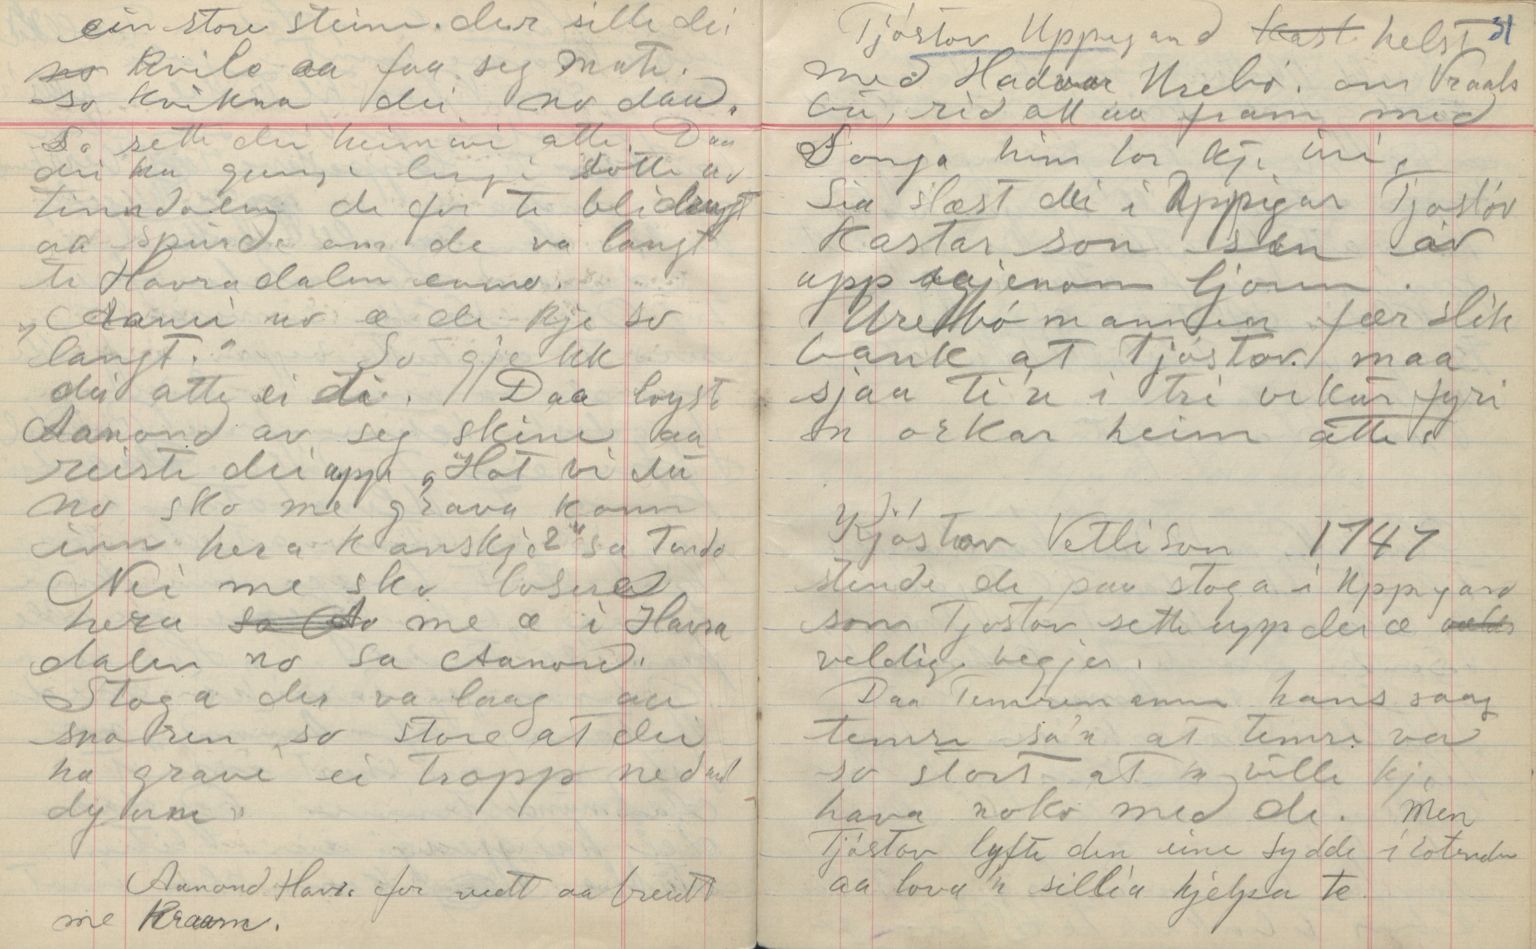 ein store steine. der sille dei
kvile aa faa seg mate.
so kvikna dei no daa.
So sette dei heimivi atte. Daa
dei ha gjengi lengi
tinndølen de før te bli langt
aa spurde om de va langt
te Havradalen enno.
"Aanei no æ de kje so
langt." So gjekk
dei atte ei ti. Daa løyste
Aanond av seg skine aa
reiste dei uppi. "Hot vi du
no sko me grava konn
inn hera kanskje?" sa Tondo
Nei me sko losera
hera me æ i Havra
dalen no sa Aanond.
Stoga der va laag aa
snoren so store at dei
ha gravi ei tropp ned aat
dyrann.
Aanond Havra for vedt aa breidt
me Kraam.
31
Tjøstov Uppigard kast helst
med Hadvor Urebø. om Vraals
bu, rid att aa fram med
Songa him tor kje uti,
Sia slæst dei i Uppigar Tjostøv
Kastar son sin av
upp igjenom ljorin.
Urebømannen fær slik
bank at Tjøstov maa
sjaa ti'n i tri vikur fyri
n orkar heim atte.
Kjøstov Vetlison 1747
stende de paa stoga i Uppigard
som Tjøstov sette upp der æ
veldige vegjer.
Daa Temremannen hans saag
temre sa'n at temre var
so stort at n ville kje
hava noko med de. Men
Tjøstov lyfte den eine sydde i rotenden
aa lova'n sillia hjelpa te